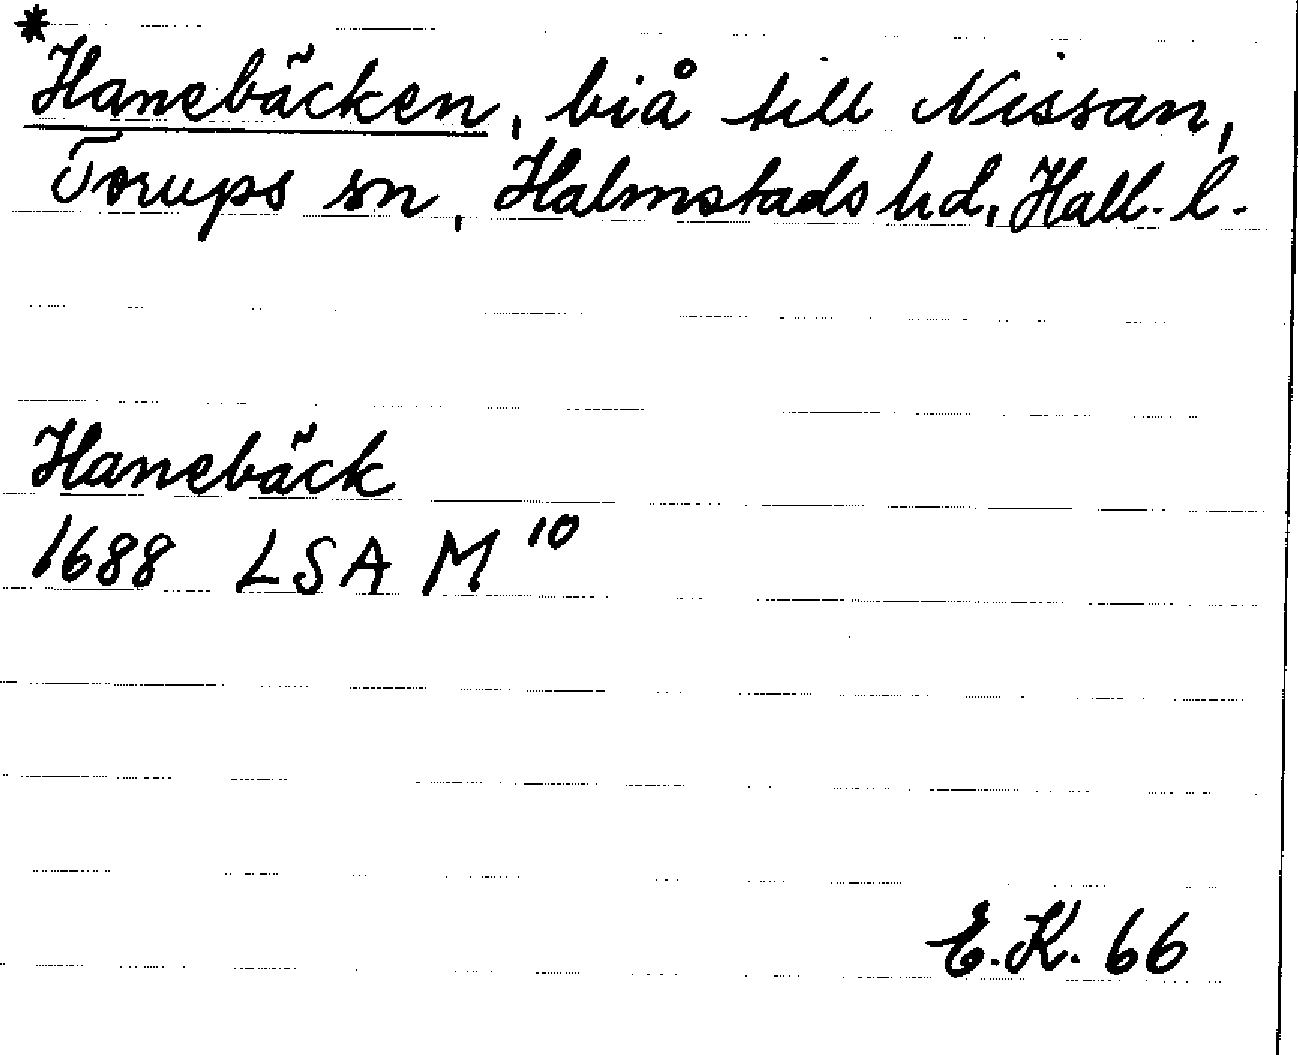 *
Hanebäcken, biå till Nissan,
Torups sn, Halmstads hd, Hall. l.
Hanebäck
1688 LSA M 10
E.K. 66